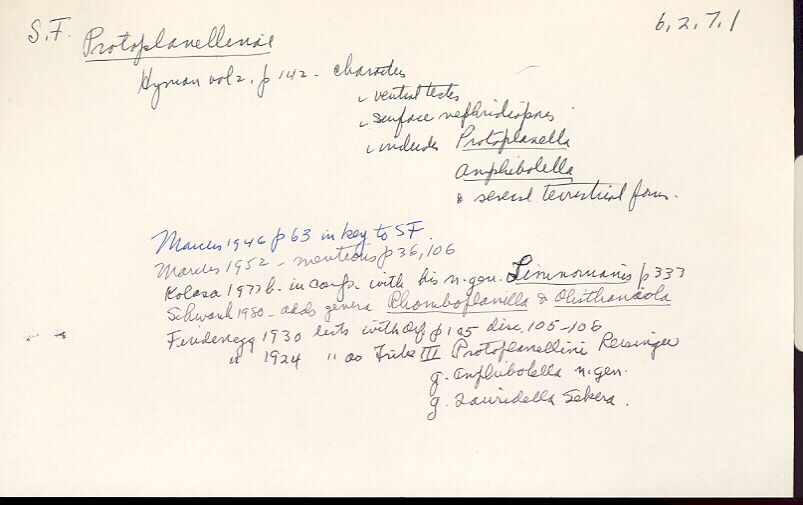 S.F. Protoplanellinae
6.2.7.1
Hyman vol 2. p 142 - characters
ventral testes
surface nephridiopores
includes Protoplanella
Amphibolella
& several terrestrial forms.
Marcus 1946 p 63 in key to SF.
Marcus 1952 - mentions p 36, 106
Kolasa 1977b - in comp. with his n. gen. Limnomanis p 333
Schwank 1980 - adds genera Rhomboplanilla &
Findenegg 1930 lists with def p 125 disc. 105-106
" 1924 " as Tribe III Protoplanellini Reisinger
g. Amphibolella n. gen.
g. Sekera.